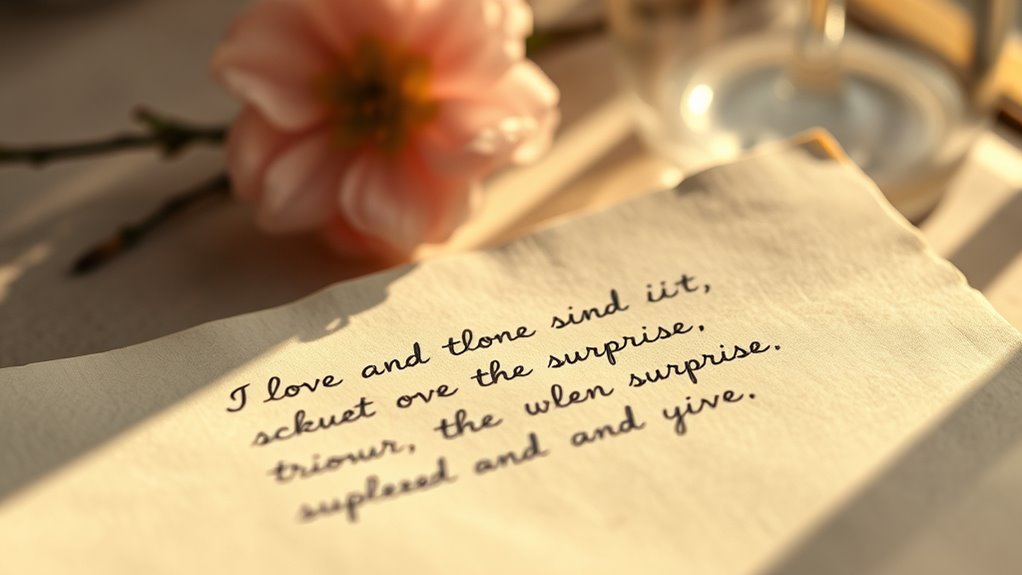 I love and tlone sind iit,
sckuet ove the surprise.
triowr, the wlen surprise.
supleeed and and yive.